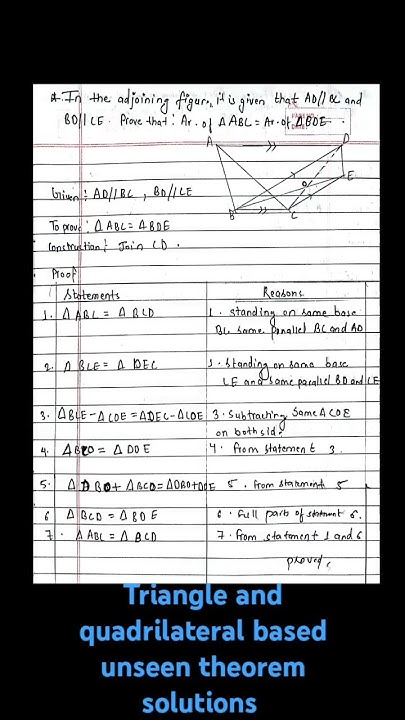 In the adjoining figure, it is given that AD//BC and
BD//CE. Prove that: Ar. of ΔABC = Ar. of ΔBDE.
A
D
E
O
B
C
Given: AD//BC, BD//CE
To prove: ΔABC = ΔBDE
Construction: Join CD.
Proof
Statements
Reasons
1. ΔABC = ΔBCD
1. standing on same base
BC same parallel BC and AD
2. ΔBCE = Δ DEC
2. Standing on same base
CE and same parallel BD and CE
3. ΔBCE-ΔCOE=ΔDEC-ΔCOE
3. Subtracting same ΔCOE
on both side.
4. ΔBCO = ΔDOE
4. From statement 3.
5. ΔDBO+ΔBCO=ΔDBO+DOE
5. From statement 5
6 ΔBCD = ΔBDE
6. Full parts of statment 6.
7. ΔABC = ΔBCD
7. From statement 1 and 6
proved,
Triangle and
quadrilateral based
unseen theorem
solutions